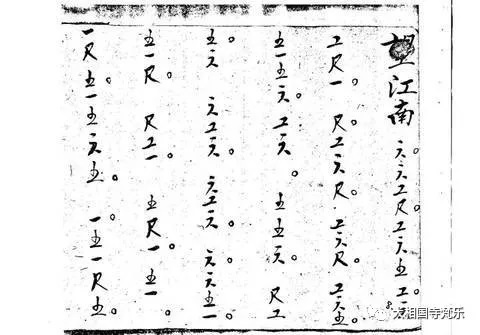 望江南 六。六工尺。工六五。工
工尺一 尺工六尺。工六尺 工六五。
五一五六。工六。五五六 尺工
五。六 六工六。六工六。六。六五一
五一尺。尺工一 五尺一。五一
一尺。五一五六五。一。五一尺五。
大相国寺梵乐